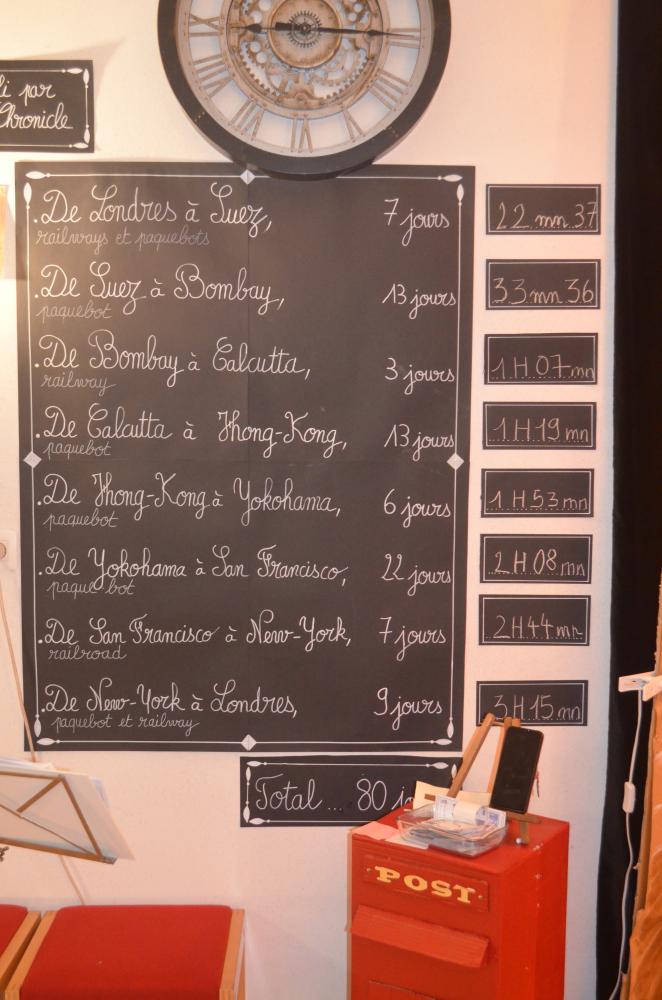 li par
Chronicle
. De Londres à Suez, 7 jours 22 mn 37
railways et paquebots
. De Suez à Bombay, 13 jours 33 mn 36
paquebot
. De Bombay à Calcutta, 3 jours 1 H 07 mn
railway
. De Calcutta à Hong-Kong, 13 jours 1 H 19 mn
paquebot
. De Hong-Kong à Yokohama, 6 jours 1 H 53 mn
paquebot
. De Yokohama à San Francisco, 22 jours 2 H 08 mn
paquebot
. De San Francisco à New-York, 7 jours 2H44 mn
railroad
. De New-York à Londres, 9 jours 3 H 15 mn
paquebot et railway
Total ... 80 j
POST